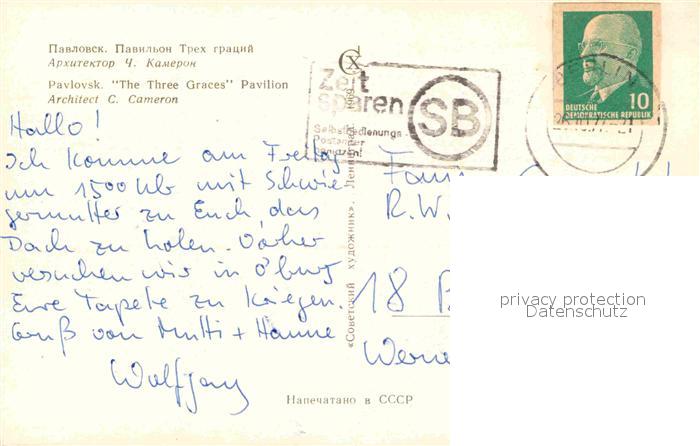 Павловск. Павильон Трех граций
Архитектор Ч. Камерон
Pavlovsk. "The Three Graces" Pavilion
Architect C. Cameron
Hallo!
Ich komme am Freitag
um 1500 Uhr mit Schwie
germutter zu Euch, das
Dach zu holen. Vorher
versuchen wir in O'burg
Eure Tapete zu kriegen.
Gruß von Mutti + Hanne
Wolfgang
«Советский художник». Ленинград 1969
Напечатано в СССР
Zeit
sparen
SB
Selbstbedienungs-
Postämter
BERLIN
10
DEUTSCHE
DEMOKRATISCHE REPUBLIK
Fam
R.W.
18 B
Werne
privacy protection
Datenschutz